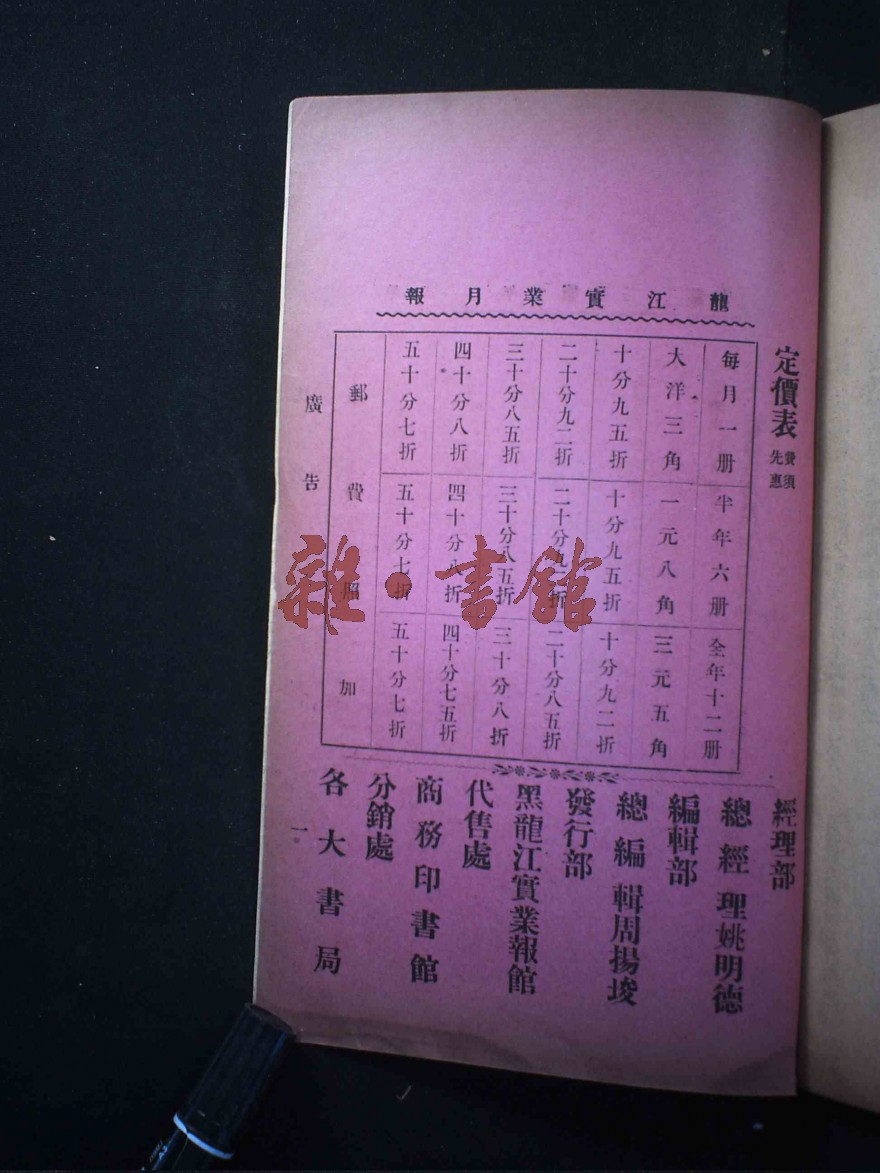 龍江實業月報
定價表 費須先惠
每月一册 半年六册 全年十二册
大洋三角 一元八角 三元五角
十分九五折 十分九五折 十分九二折
二十分九二折 二十分九二折 二十分八五折
三十分八五折 三十分八五折 三十分八折
四十分八折 四十分八折 四十分七五折
五十分七折 五十分七折 五十分七折
郵費照加
廣告
經理部
總經理姚明德
編輯部
總編輯周揚埈
發行部
黑龍江實業報館
代售處
商務印書館
分銷處
各大書局
一
雜·書館